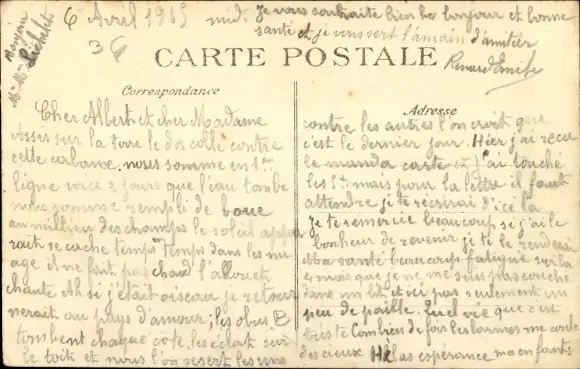 6 Avril 1915 midi Je vous souhaite bien le bonjour et bonne
santé et je vous sert la main d'amitier
Renard Emile
Bonjour
Mr Mme
36
CARTE POSTALE
Correspondance
Cher Albert et cher Madame
Assis sur la terre le dos collé contre
cette cabane. nous somme en 1ère
ligne voici 2 jours que l'eau tombe
nous somme rempli de boue
au millieu des champs le soleil appa
rait se cache temps en temps dans les nu
age il ne fait pas chaud l'allouet
chante Ah si j'était oiseau je retour
nerait au pays d'amour; les obus B
tombent chaque coté les éclat sur
le toit et nous l'on se sert les uns
Adresse
contre les autres l'on croit que
c'est le dernier jour. Hier j'ai recu
le manda carte et j'ai touché
les 5f mais pour la lettre il faut
attendre je te recrirai d'ici la
je te remercie beaucoup si j'ai le
bonheur de revenir je te le rendrai
Ma santé beaucoup fatigué voila
4 mois que je ne me suis pas couché
dans un lit et ici pas seulement un
peu de paille. Quel vie que c'est
triste Combien de fois les larmes me coule
des cieux Hélas espérance ma enfants